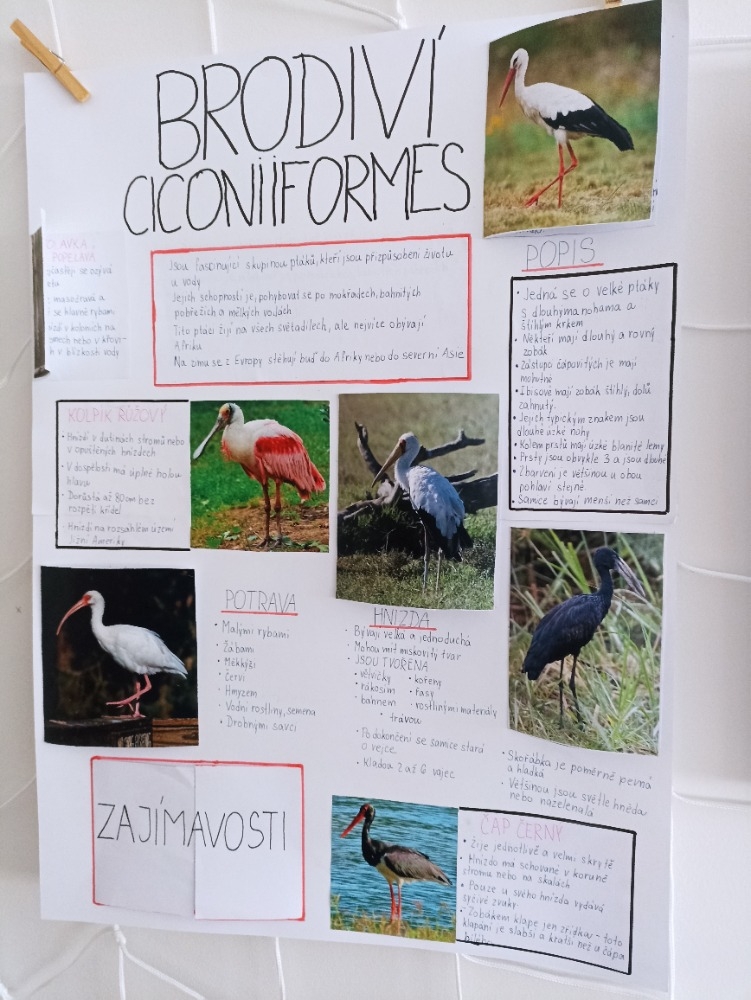 BRODIVÍ
CICONIIFORMES
Jsou fascinující skupinou ptáků, kteří jsou přizpůsobeni životu
u vody
Jejich schopností je, pohybovat se po mokřadech, bahnitých
pobřežích a mělkých vodách
Tito ptáci žijí na všech světadílech, ale nejvíce obývají
Afriku
Na zimu se z Evropy stěhují buď do Afriky nebo do severní Asie
POPELAVÁ
se ozývá
masožravá a
se hlavně rybami
v koloniích na
nebo v křoví
v blízkosti vody
POPIS
• Jedná se o velké ptáky
s dlouhýma nohama a
štíhlým krkem
• Někteří mají dlouhý a rovný
zobák
• Zástupci čápovitých je mají
mohutné
• Ibisové mají zobák štíhlý, dolů
zahnutý
• Jejich typickým znakem jsou
dlouhé úzké nohy
• Kolem prstů mají úzké blanité lemy
• Prsty jsou obvykle 3 a jsou dlouhé
• Zbarvení je většinou u obou
pohlaví stejné
• Samice bývají menší než samci
KOLPÍK RŮŽOVÝ
• Hnízdí v dutinách stromů nebo
v opuštěných hnízdech
• V dospělosti má úplně holou
hlavu
• Dorůstá až 80cm bez
rozpětí křídel
• Hnízdí na rozsáhlém území
Jižní Ameriky
POTRAVA
• Malými rybami
• Žábami
• Měkkýši
• Červi
• Hmyzem
• Vodní rostliny, semena
• Drobnými savci
HNÍZDA
• Bývají velká a jednoduchá
• Mohou mít miskovitý tvar
• JSOU TVOŘENA
• větvičky • kořeny
• rákosím • řasy
• bahnem • rostlinnými materiály
• trávou
• Po dokončení se samice stará
o vejce
• Klade 2 až 6 vajec
• Skořábka je poměrně pevná
a hladká
• Většinou jsou světle hnědá
nebo nazelenalá
ZAJÍMAVOSTI
ČÁP ČERNÝ
• Žije jednotlivě a velmi skrytě
• Hnízdo má schované v koruně
stromu nebo na skalách
• Pouze u svého hnízda vydává
syčivé zvuky
• Zobákem klape jen zřídka - toto
klapání je slabší a kratší než u čápa
bílého